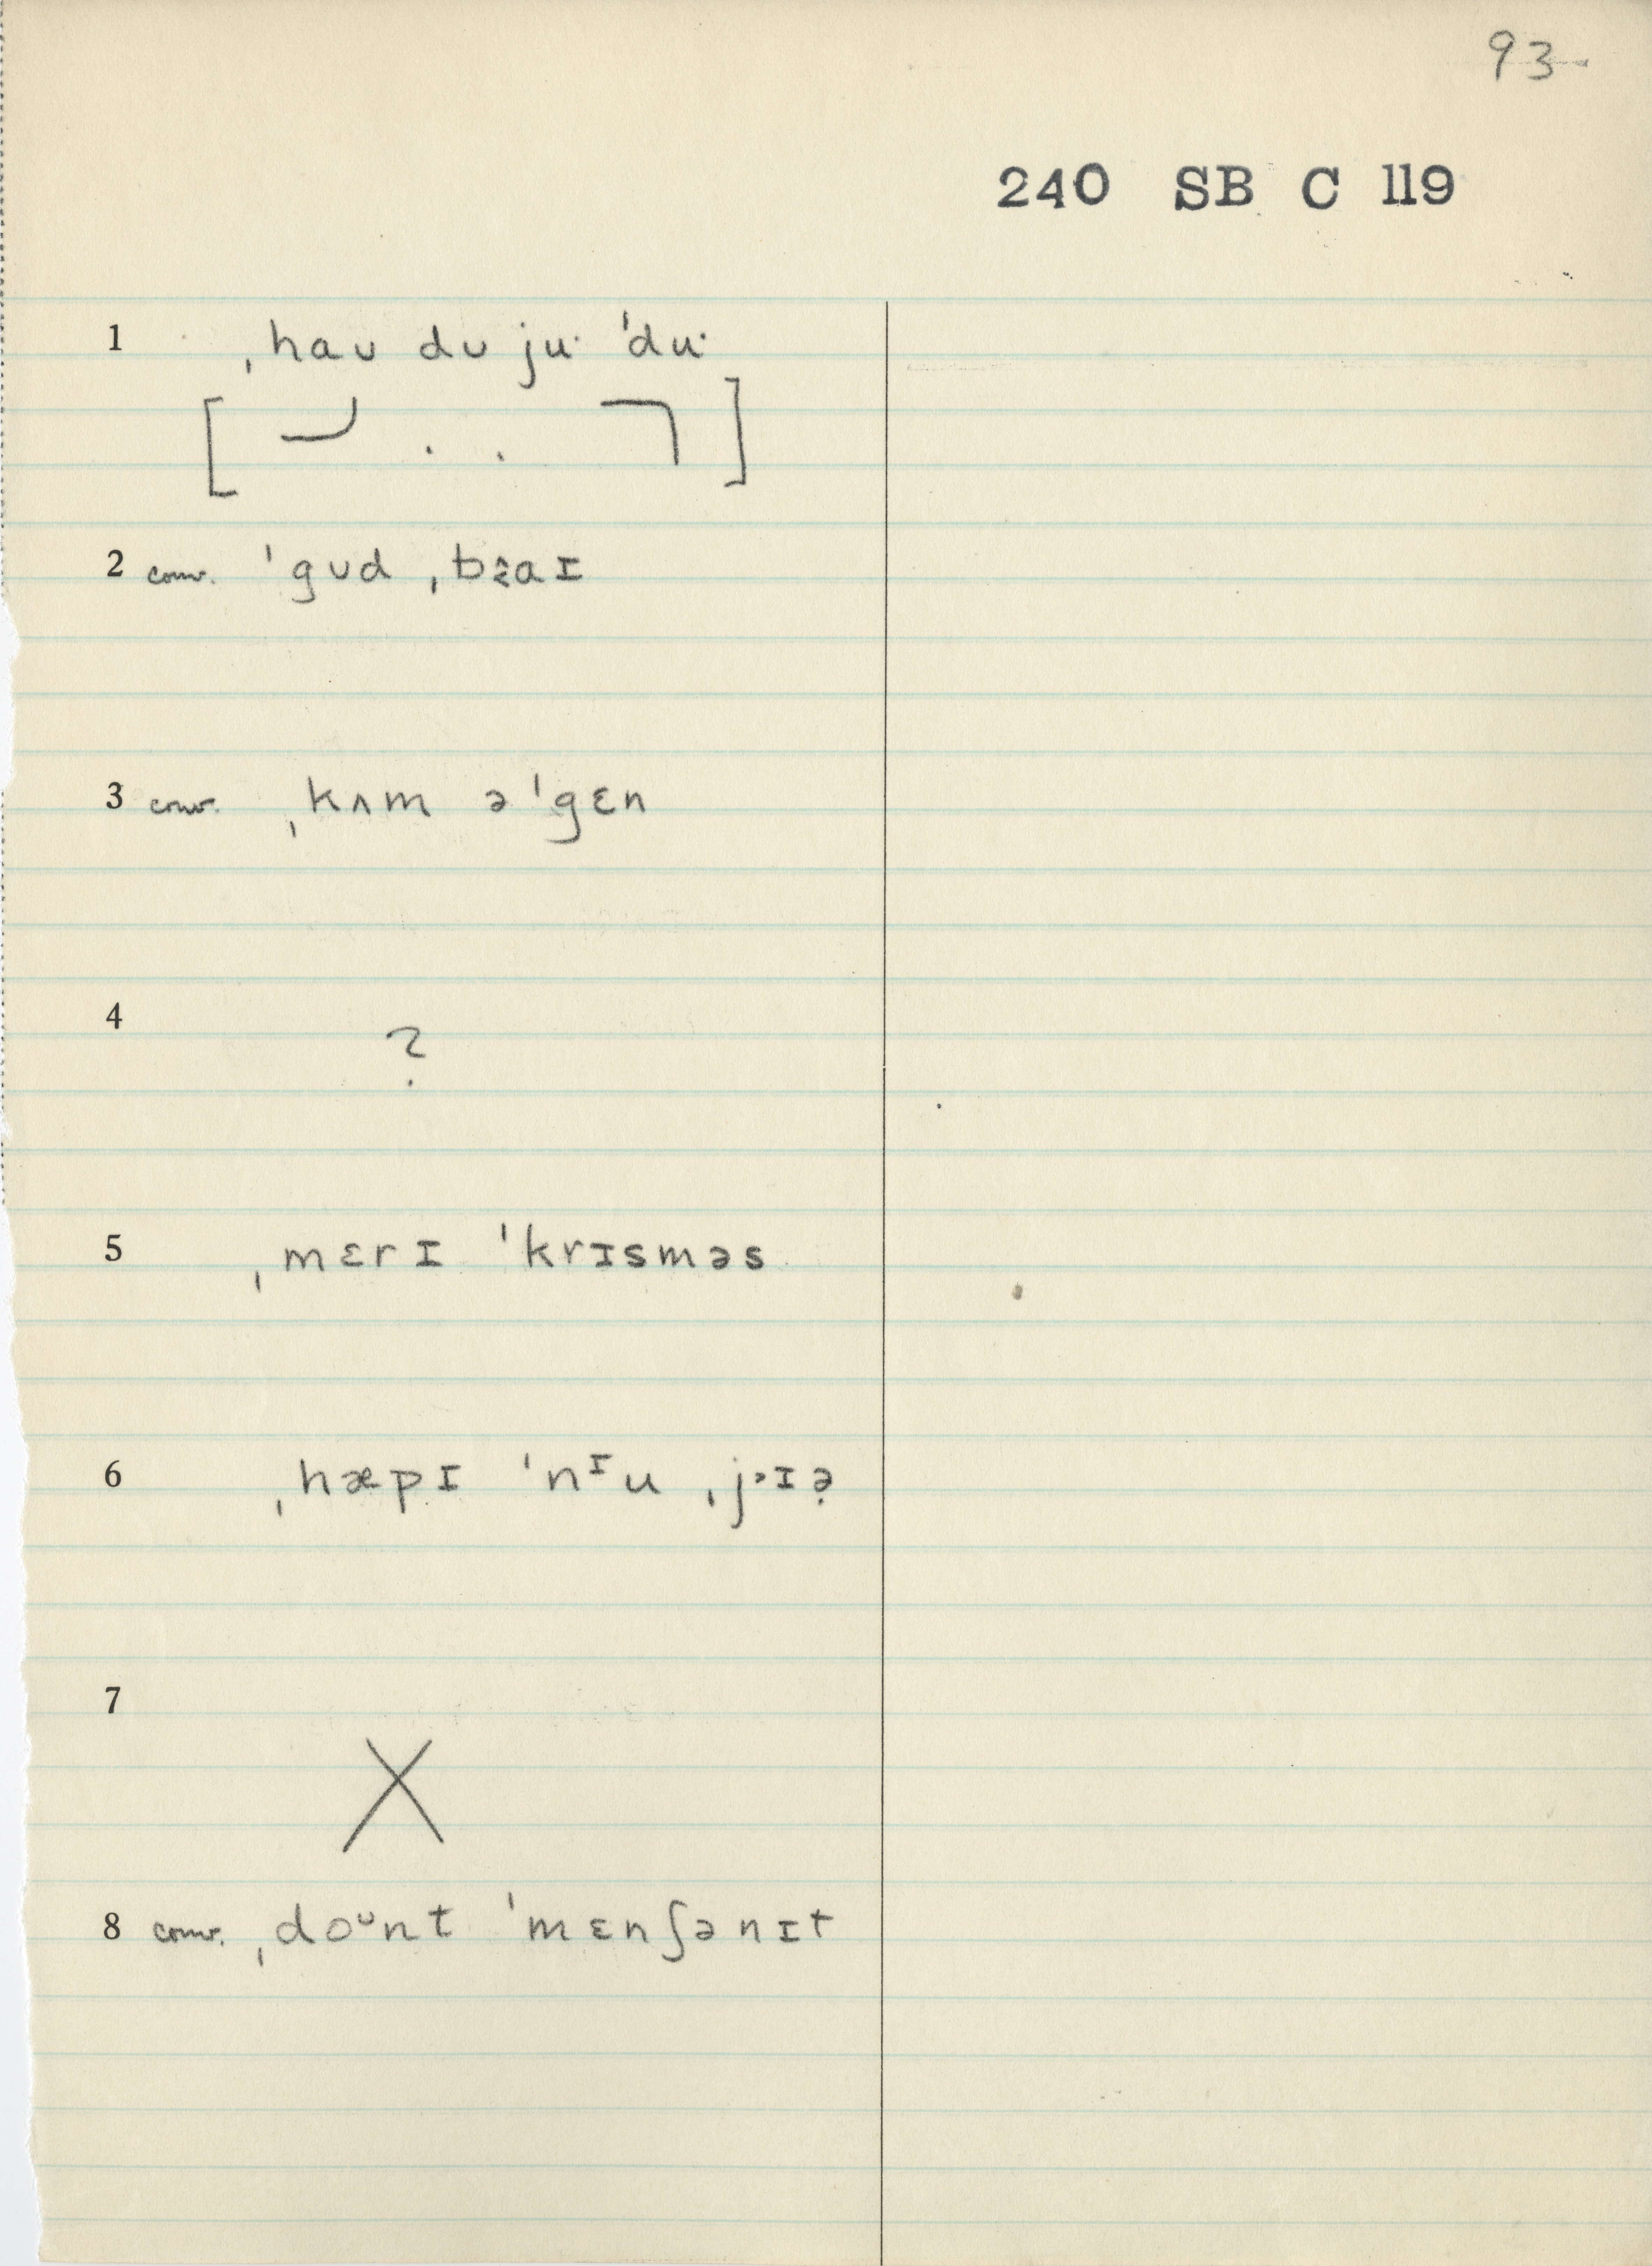 93
240 SB C 119
1 ˌhaʊ dʊ ju· ˈdu·
2 conv. ˈgʊd ˌbaɪ
3 conv. ˌkʌm əˈgɛn
4 ?
5 ˌmɛrɪ ˈkrɪsməs
6 ˌhæpɪ ˈnᶦu ˌj˃ɪə̣
7 X
8 conv. ˌdoᶷnt ˈmɛnʃənɪt